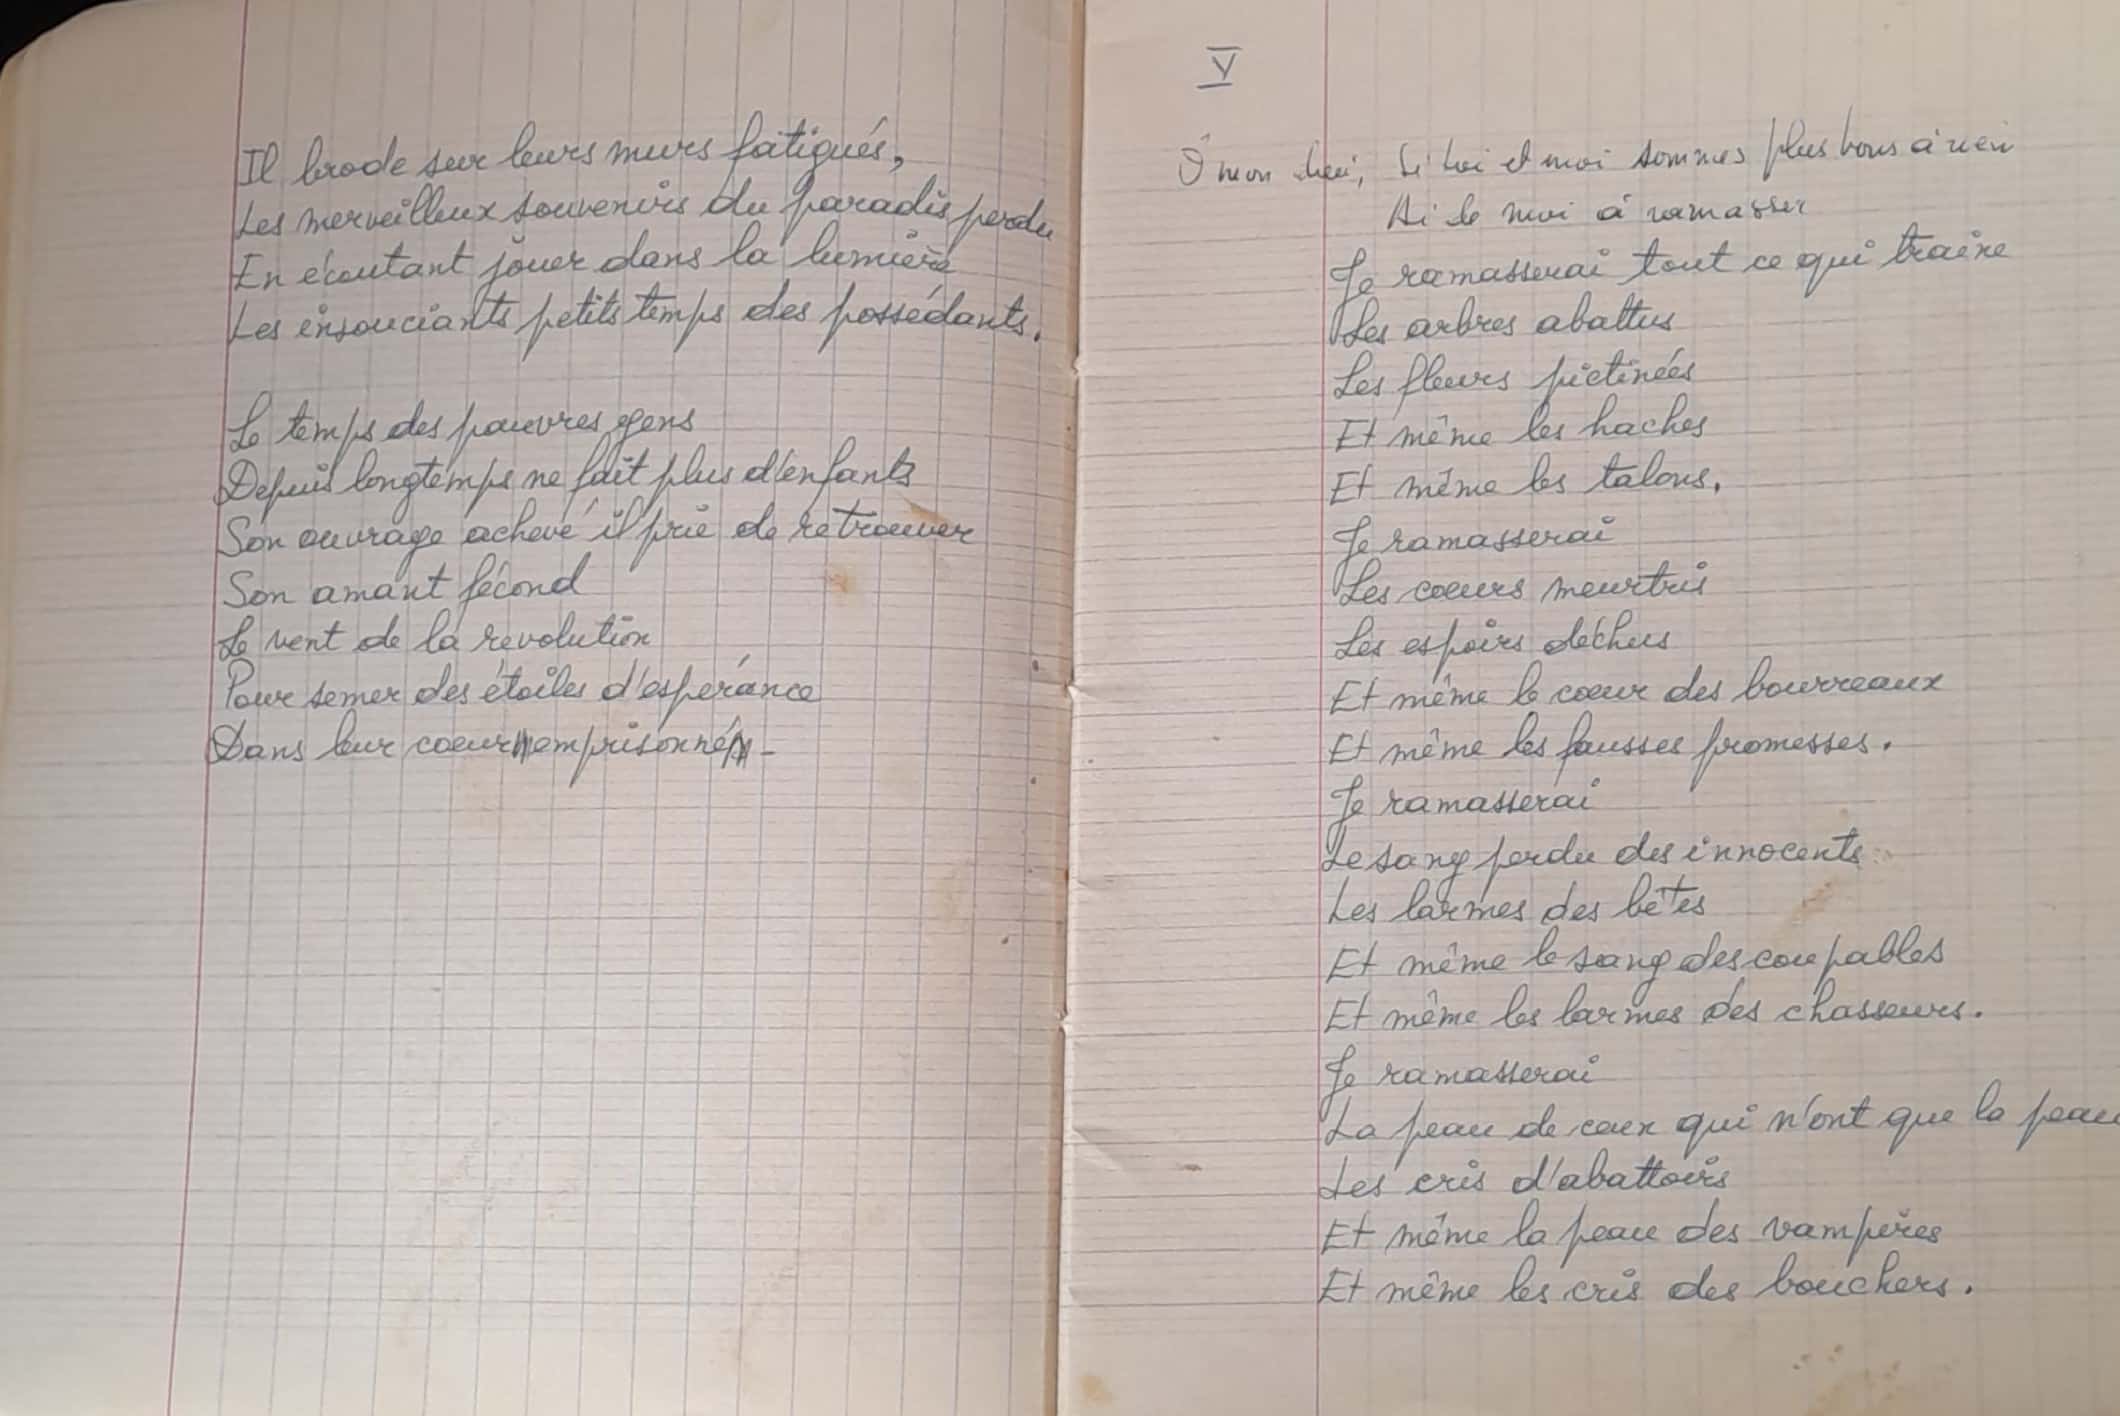 Il brode sur leurs murs fatigués,
Les merveilleux souvenirs du paradis perdu
En écoutant jouer dans la lumière
Les insouciants petits temps des possédants.
Le temps des pauvres gens
Depuis longtemps ne fait plus d'enfants
Son ouvrage achevé il prie de retrouver
Son amant fécond
Le vent de la revolution
Pour semer des étoiles d'espérance
Dans leur coeur emprisonné -
V
Ô mon dieu, Si toi et moi sommes plus bons à rien
à ramasser
Je ramasserai tout ce qui traine
Les arbres abattus
Les fleurs piétinées
Et même les haches
Et même les talons.
Je ramasserai
Les coeurs meurtris
Les espoirs déchus
Et même le coeur des bourreaux
Et même les fausses promesses.
Je ramasserai
Le sang perdu des innocents
Les larmes des bêtes
Et même le sang des coupables
Et même les larmes des chasseurs.
Je ramasserai
La peau de ceux qui n'ont que la peau
Les cris d'abattoirs
Et même la peau des vampires
Et même les cris des bouchers.